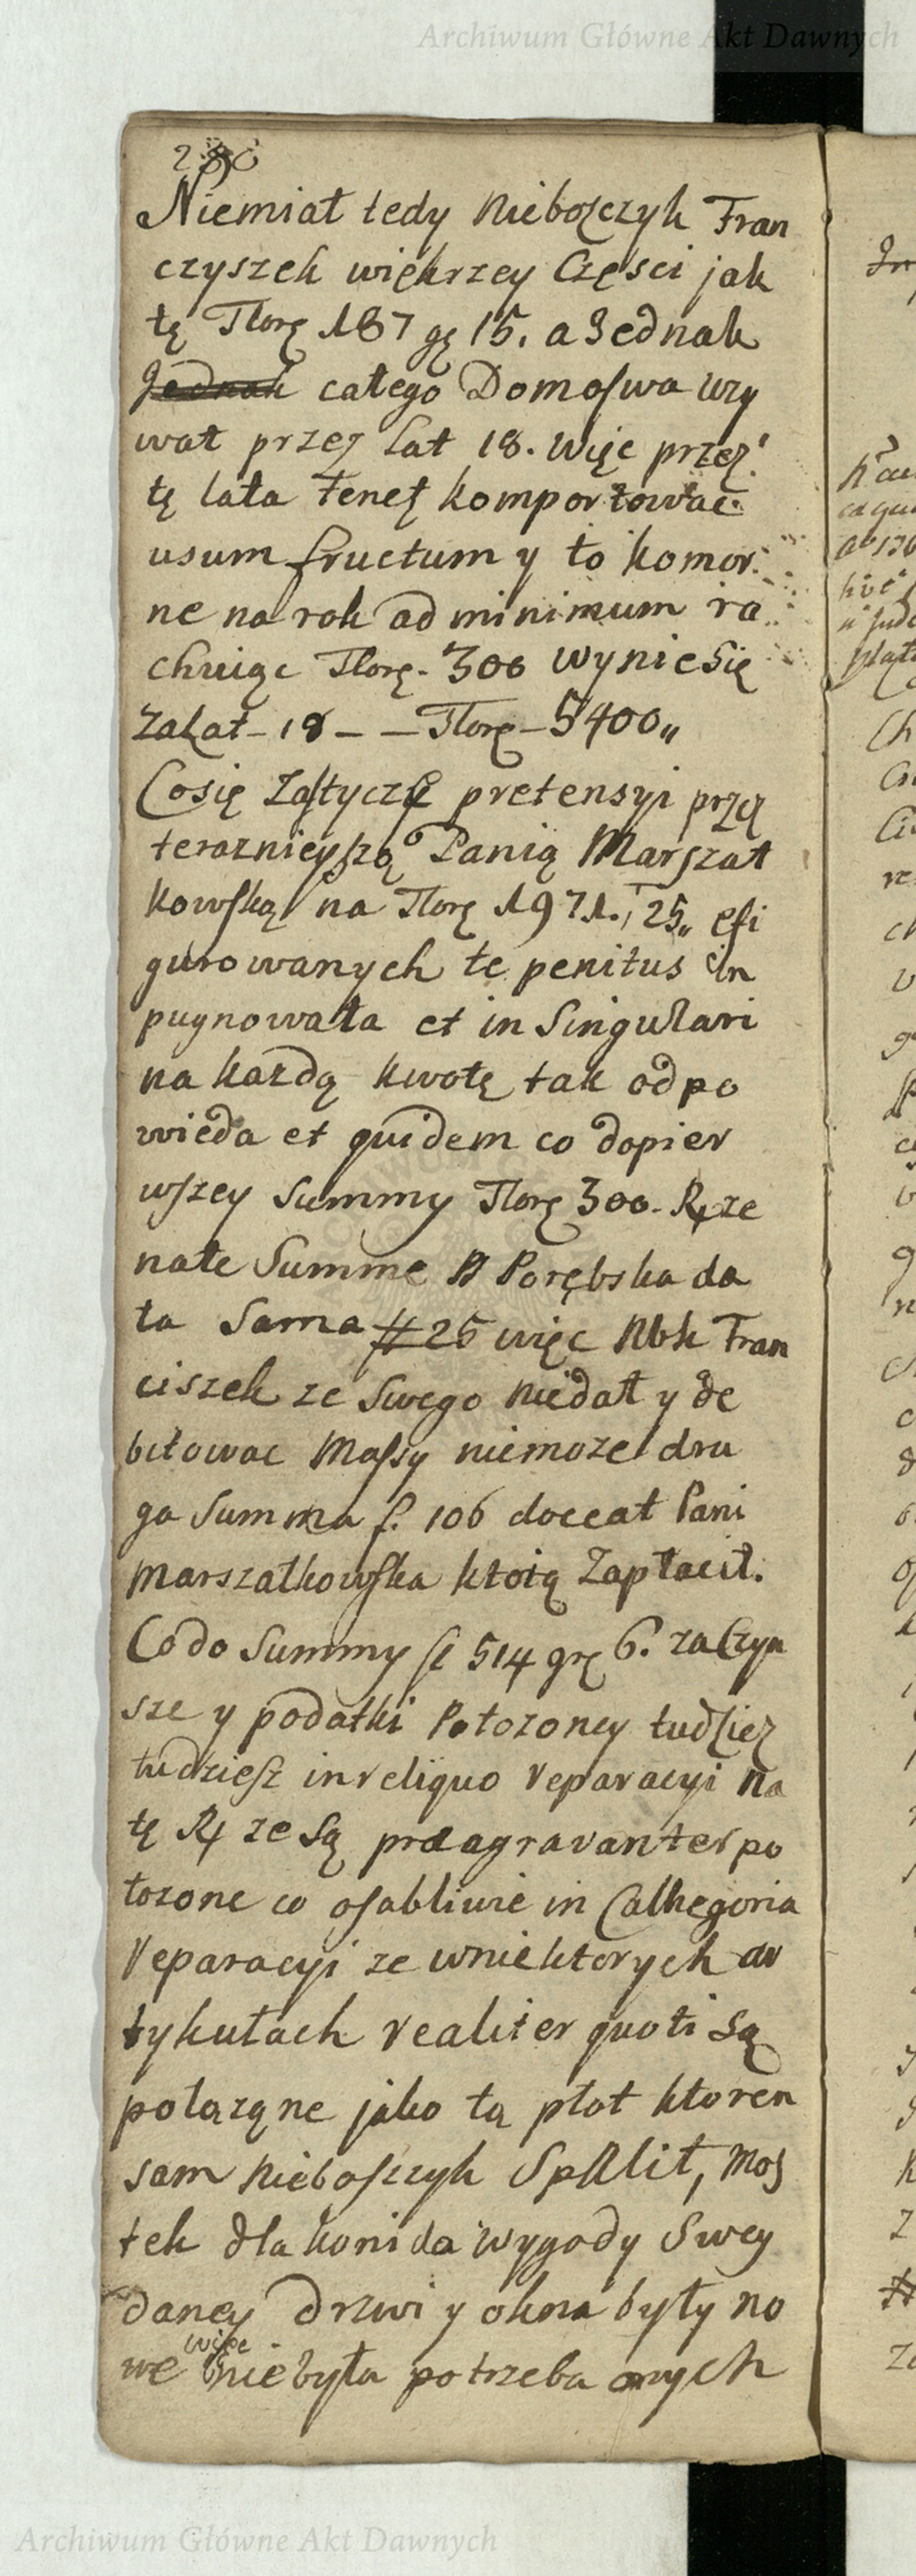 Archiwum Główne Akt Dawnych
Niemiał tedy Nieboszczyk Fran
czyszek większey Części jak
tę Florę 187 gę 15. a Jednak
Jednak całego Domostwa uzy
wał przez Lat 18. Więc przez
tę lata tenetę komportować
usum fructum y to komor
ne na rok ad minimum ra
chuiąc Florę. 300 wyniesię
za Lat – 18 – – Florę – 5400„
Cosię Zastyczę pretensyi przez
teraznieyszą Panią Marszał
kowską na Florę 1971. 25„ efi
gurowanych te penitus im
pugnowała et in Singulari
na kazdą kwotę tak odpo
wieda et quidem co dopier
wszey Summy Florę 300. Rx ze
natę Summe P Porębska da
ła Sama # 25 więc Nbk Fran
ciszek ze Swego niedał y de
bitowac Massy niemoze dru
ga Summa f. 106 doceat Pani
Marszałkowska ktorą Zapłacił.
Co do Summy fl 514 grę 6. za Czyn
sze y podatki Połozoney tudziez
tudziesz in reliquo reparacyi na
tę Rx ze są praagravanter po
łozone co osabliwie in Cathegoria
reparacyi ze wniektorych ar
tykułach realiter quoti są
polozone jako ta płot ktoren
sam Nieboszczyk Spalił, Mos
tek dla konida wygody Swey
daney drzwi y okna były no
we więc niebyła potrzeba onych
Archiwum Główne Akt Dawnych